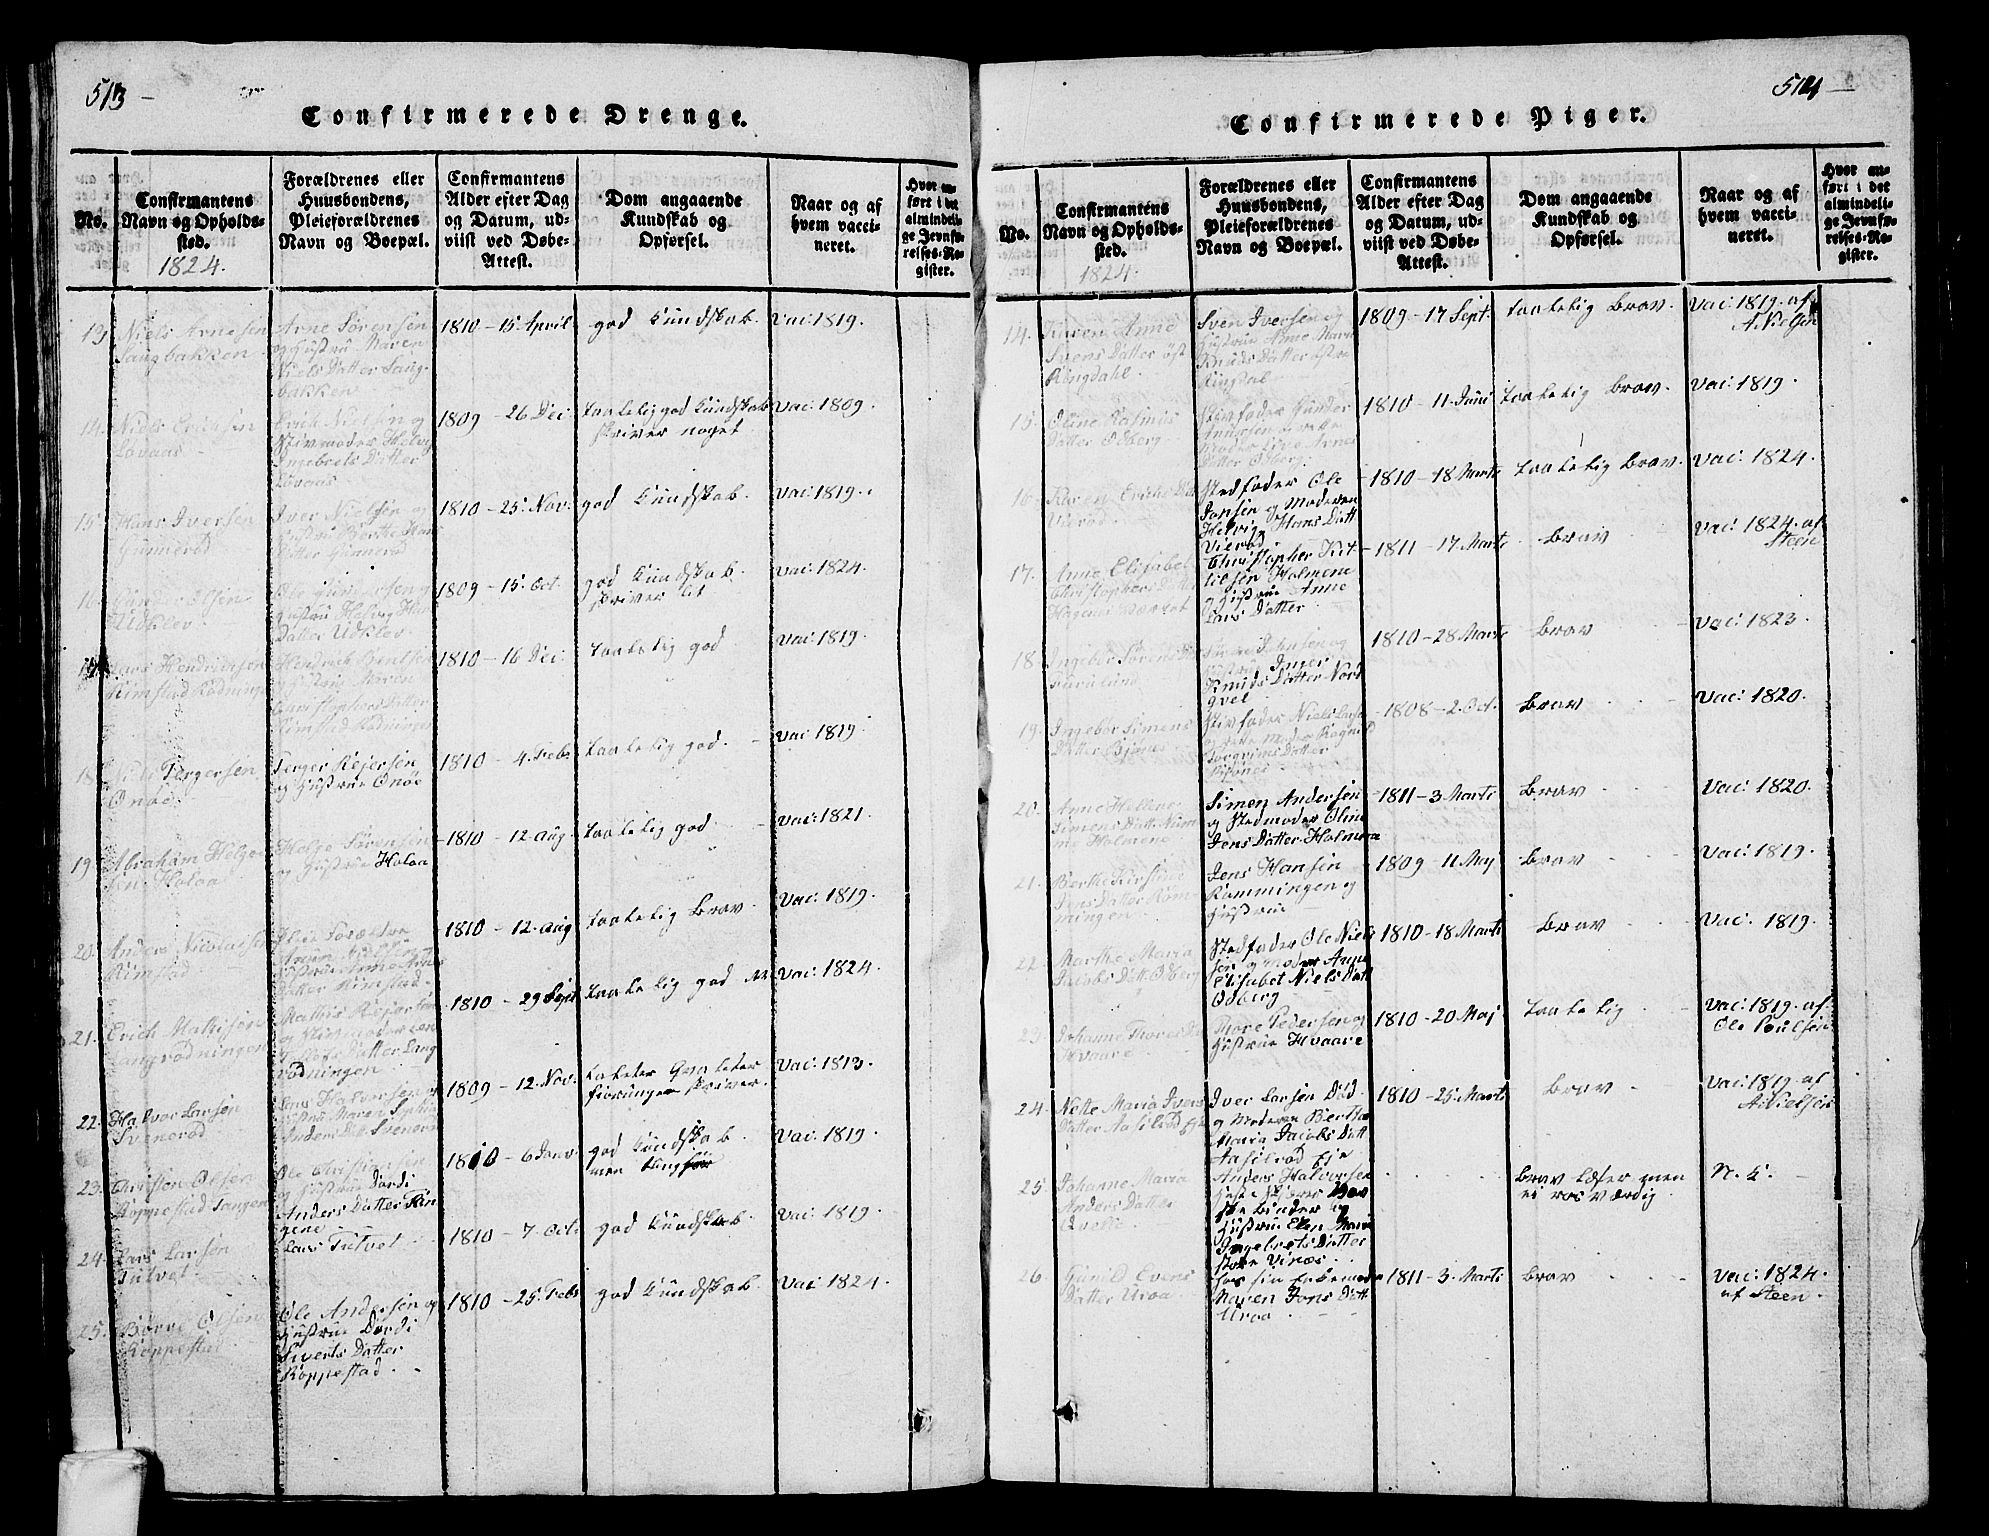 513
Confirmerede Drenge.
No.
Confirmantens
Navn og Opholds-
sted.
1824.
Forældrenes eller
Huusbondens,
Pleieforældrenes
Navn og Boepæl.
Confirmantens
Alder efter Dag
og Datum, ud-
viist ved Døbe-
Attest.
Dom angaaende
Kundskab og
Opførsel.
Naar og af
hvem vacci-
neret.
Hvor an-
ført i det
almindeli-
ge Jevnfø-
relses-Re-
gister.
13
Niels Arnesen
Saugbakken
Arne Sørensen
og Hustrue Maren
Niels Datter Saug-
bakken
1810 - 15 April
god Kundskab.
Vac: 1819.
14.
Niels Erichsen
Løvaas
Erich Nielsen og
Stivmoder Helvig
Ingebrets Datter
Løvaas
1809 - 26 Dec:
taalelig god Kundskab
skriver noget
Vac: 1809.
15.
Hans Iversen
Gunnerød
Iver Nielsen og
Hustrue Berthe Hans
Datter Gunnerød
1810 - 25. Nov:
god Kundskab.
Vac: 1819.
16.
Gunder Olsen
Udklev
Hustrue Helvig
Datter Udklev
1809 - 15. Oct.
god Kundskab.
skriver lit
Vac: 1824.
Lars Hendrichsen
Rimstad Rødningen
Hendrich Bentsen
og Hustrue Maren
Christophers Datter
Rimstad Rødningen
1810 - 16 Dec:
taalelig god
Vac: 1819.
18.
Niels Tergersen
Onøe
Terger Rejersen
og Hustrue Onøe
1810 - 4. Febr
taalelig god.
Vac: 1819.
19.
Abraham Helge-
sen Holaa
Helge Sørensen
og Hustrue Holaa
1810 - 12. Aug.
taalelig god
Vac: 1821.
20.
Anders Nicolaisen
Rimstad
Hustrue Anne
Datter Rimstad.
1810 - 12. Aug
taalelig Brav.
Vac: 1819.
21.
Erich Mathisen
Langrødningen
Mathis Rejersen
og Stivmoder
Datter Lang
rødningen
1810 - 29 Sept
taalelig god
Vac: 1824.
22.
Halvor Larsen
Svenerød
Lars Halvorsen og
Hustrue Maren Sophie
Anders Datt Svenerød
1809 - 12. Nov.
skriver.
Vac: 1813.
23.
Christen Olsen
Roppestad Tangen
Ole Christensen
og Hustrue Dordi
Anders Datter Tan
gene
1810 - 6 Janv
god Kundskab.
men
Vac: 1819.
24.
Lars Larsen
Tutvet
Lars Tutvet
1810 - 7. Oct.
god Kundskab.
Vac: 1819.
25.
Børre Olsen
Roppestad
Ole Andersen og
Hustrue Dordi
Siverts Datter
Roppestad.
1810 - 25. Febr
god Kundskab.
Vac: 1824.
514
Confirmerede Piger.
No.
Confirmantens
Navn og Opholds-
sted.
1824.
Forældrenes eller
Huusbondens,
Pleieforældrenes
Navn og Boepæl.
Confirmantens
Alder efter Dag
og Datum, ud-
viist ved Døbe-
Attest.
Dom angaaende
Kundskab og
Opførsel.
Naar og af
hvem vacci-
neret.
Hvor an-
ført i det
almindeli-
ge Jevnfø-
relses-Re-
gister.
14.
Karen Anne
Svens Datter øst
Ringdahl.
Sven Iversen og
Hustrue Anne Marie
Knuds Datter østre
Ringdal
1809 - 17 Sept.
taalelig Brav.
Vac: 1819. af
A. Nielsen
15.
Oline Rasmus
Datter Odberg
Stivfader Gunder
Moder Live Arnes
Datter Odberg.
1810 - 11. Juni
taalelig Brav.
Vac: 1819.
16.
Karen Erichs Dat
Vierød.
Stedfader Ole
Jansen og Moderen
Helvig Hans Datt
Vierød.
1810 - 18 Marts
taalelig Brav.
Vac: 1824.
17.
Anne Elisabet
Christophers Datter
Christopher Ket-
tilsen Holmene
og Hustrue Anne
Lars Datter
1811 - 17. Marts
Brav
Vac: 1824. af
Steen
18.
Ingebor Sørens Dat
Furulund
og Hustrue Inger
Knuds Datter Nord
qvel
1810 - 28 Marts
Brav
Vac: 1823.
19.
Ingebor Simens
Datter Bjønes
Stivfader Niels Larsen
og Moder Ragnild
Torgrims Datter
Bjønes
1808 - 2. Oct.
Brav
Vac: 1820.
20.
Anne Hellene
Simens Datt. Num
me Holmene
Simen Andersen
og Stedmoder Oline
Jens Datter Holmene
1811 - 3 Marts
Brav
Vac: 1820.
21.
Berthe Kirstine
Jens Datter Røm
mingen
Jens Hansen
Rømmingen og
Hustrue
1809 - 11 Maj
Brav
Vac: 1819.
22
Marthe Maria
Jacobs Datt Odberg
Stedfader Ole Niel
sen og Moder Anne
Elisabet Niels Datt
Odberg
1810 - 18 Marts
Brav
Vac: 1819.
23.
Johanne Thores Dat
Hvaare
Thore Pedersen og
Hustrue Hvaare
1810 - 20 Maj
taalelig
Vac: 1819. af
Ole Poulsen
24.
Nette Maria Ivers
Datter Aasilrød Eje
Iver Larsen Død
og Moderen Berthe
Maria Jacobs Datt
Aasilrød Eje
1810 - 25. Marts
Brav
Vac: 1819. af
A. Nielsen
25.
Johanne Maria
Anders Datter
Qvelle
Anders Halvorsen
Hustrue Elen Maria
Ingebrets Datter
store Vinæs
Brav Læser men
ei rosværdig
N. L.
26.
Gunild Evens
Datter Uroa
hos sin Enkemoder
Maren Jons Datt
Uroa
1811 - 3. Marts
Brav
Vac: 1824.
af Steen.